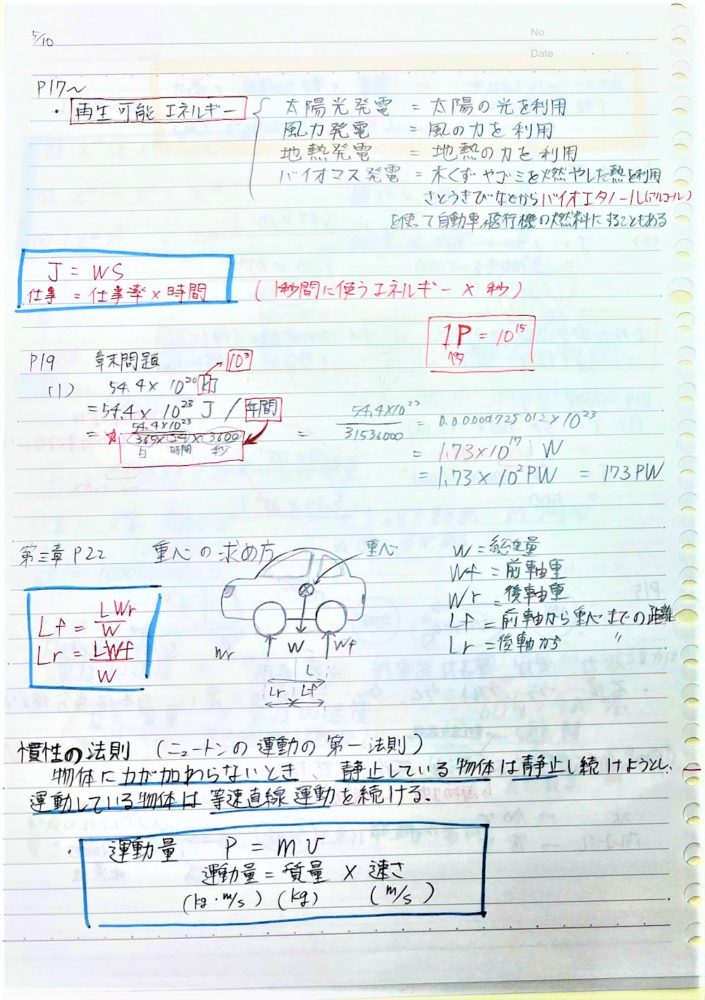 5/10
No.
Date
P17～
・再生可能エネルギー
太陽光発電 = 太陽の光を利用
風力発電 = 風の力を利用
地熱発電 = 地熱の力を利用
バイオマス発電 = 木くずやゴミを燃やした熱を利用
さとうきびなどからバイオエタノール(アルコール)
を使って自動車、飛行機の燃料にすることもある
J = WS
仕事 = 仕事率 × 時間 (1秒間に使うエネルギー × 秒)
1P = 10¹⁵
ペタ
P19 章末問題
10³
(1) 54.4 × 10²⁰ kJ
= 54.4 × 10²³ J / 年間
= 54.4×10²³ / 365×24×3600 = 54.4×10²³ / 31536000 = 0.000001725012×10²³
日 時間 秒
= 1.73×10¹⁷ W
= 1.73×10² PW = 173 PW
第三章 P22 重心の求め方
重心
W = 総重量
Wf = 前軸重
Wr = 後軸重
Lf = 前軸から重心までの距離
Lr = 後軸から 〃
Lf = LWr / W
Lr = LWf / W
Wr W Wf
L
Lr Lf
慣性の法則 (ニュートンの運動の第一法則)
物体に力が加わらないとき、静止している物体は静止し続けようとし、
運動している物体は等速直線運動を続ける。
・運動量 P = mv
運動量 = 質量 × 速さ
(kg・m/s) (kg) (m/s)